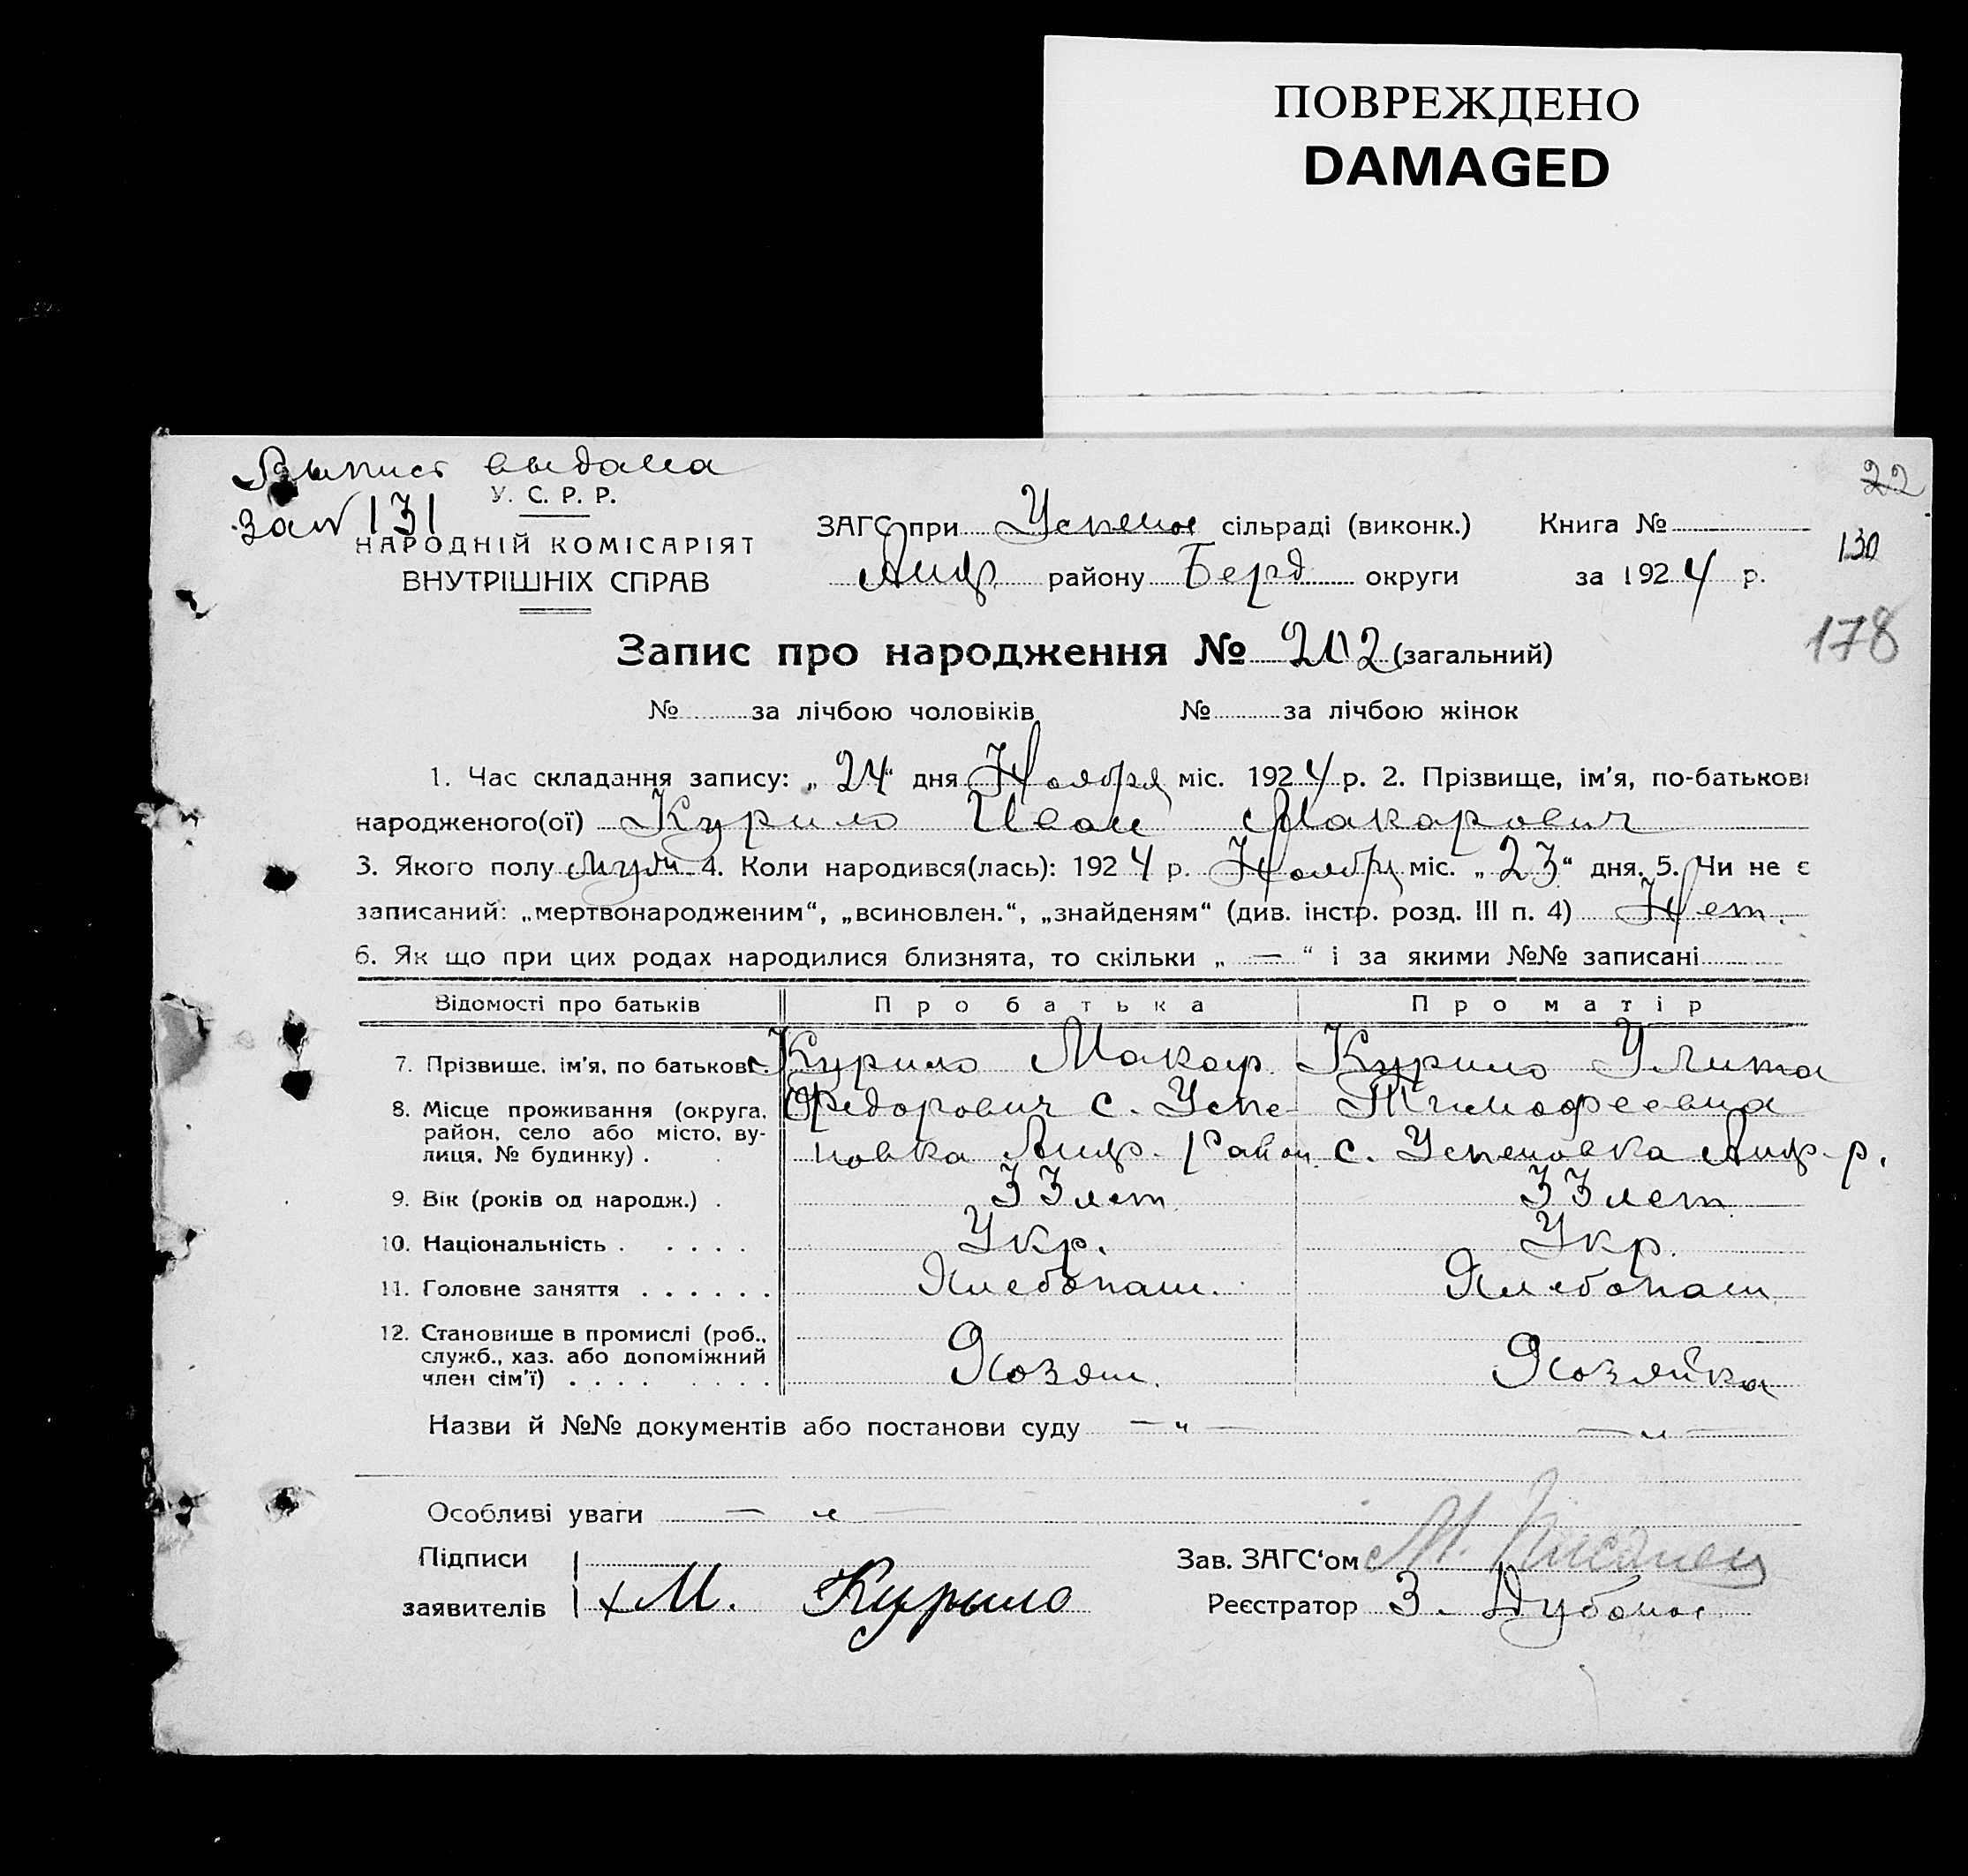 ПОВРЕЖДЕНО
DAMAGED
Выпись выдана
за № 131
22
У. С. Р. Р.
НАРОДНІЙ КОМІСАРІЯТ
ВНУТРІШНІХ СПРАВ
ЗАГС при Успенов сільраді (виконк.) Книга №
130
Андр району Берд округи за 1924 р.
178
Запис про народження № 202 (загальний)
№ за лічбою чоловіків № за лічбою жінок
1. Час складання запису: „24“ дня Ноября міс. 1924 р. 2. Прізвище, ім'я, по-батькові
народженого(ої) Курило Иван Макарович
3. Якого полу муж. 4. Коли народився(лась): 1924 р. Ноябр міс. „23“ дня. 5. Чи не є
записаний: „мертвонародженим“, „всиновлен.“, „знайденям“ (див. інстр. розд. III п. 4) Нет.
6. Як що при цих родах народилися близнята, то скільки „—“ і за якими №№ записані
Відомості про батьків Про батька Про матір
7. Прізвище, ім'я, по батькові. Курило Макар Курило Улита
8. Місце проживання (округа, Федорович с. Успе- Тимофеевна
район, село або місто, ву-
лиця, № будинку) . новка Андр. Район. с. Успеновка Андр. р.
9. Вік (років од народж.) . 33 лет 33 лет
10. Національність . . . . . Укр. Укр.
11. Головне заняття . . . . . . Хлебопаш. Хлебопаш
12. Становище в промислі (роб.,
служб., хаз. або допоміжний
член сім'ї) . . . . . . . . Хозяин. Хозяйка
Назви й №№ документів або постанови суду — „ — — „ —
Особливі уваги — „ —
Підписи
заявителів М. Курило
Зав. ЗАГС‘ом М.
Реєстратор З. Дубонос